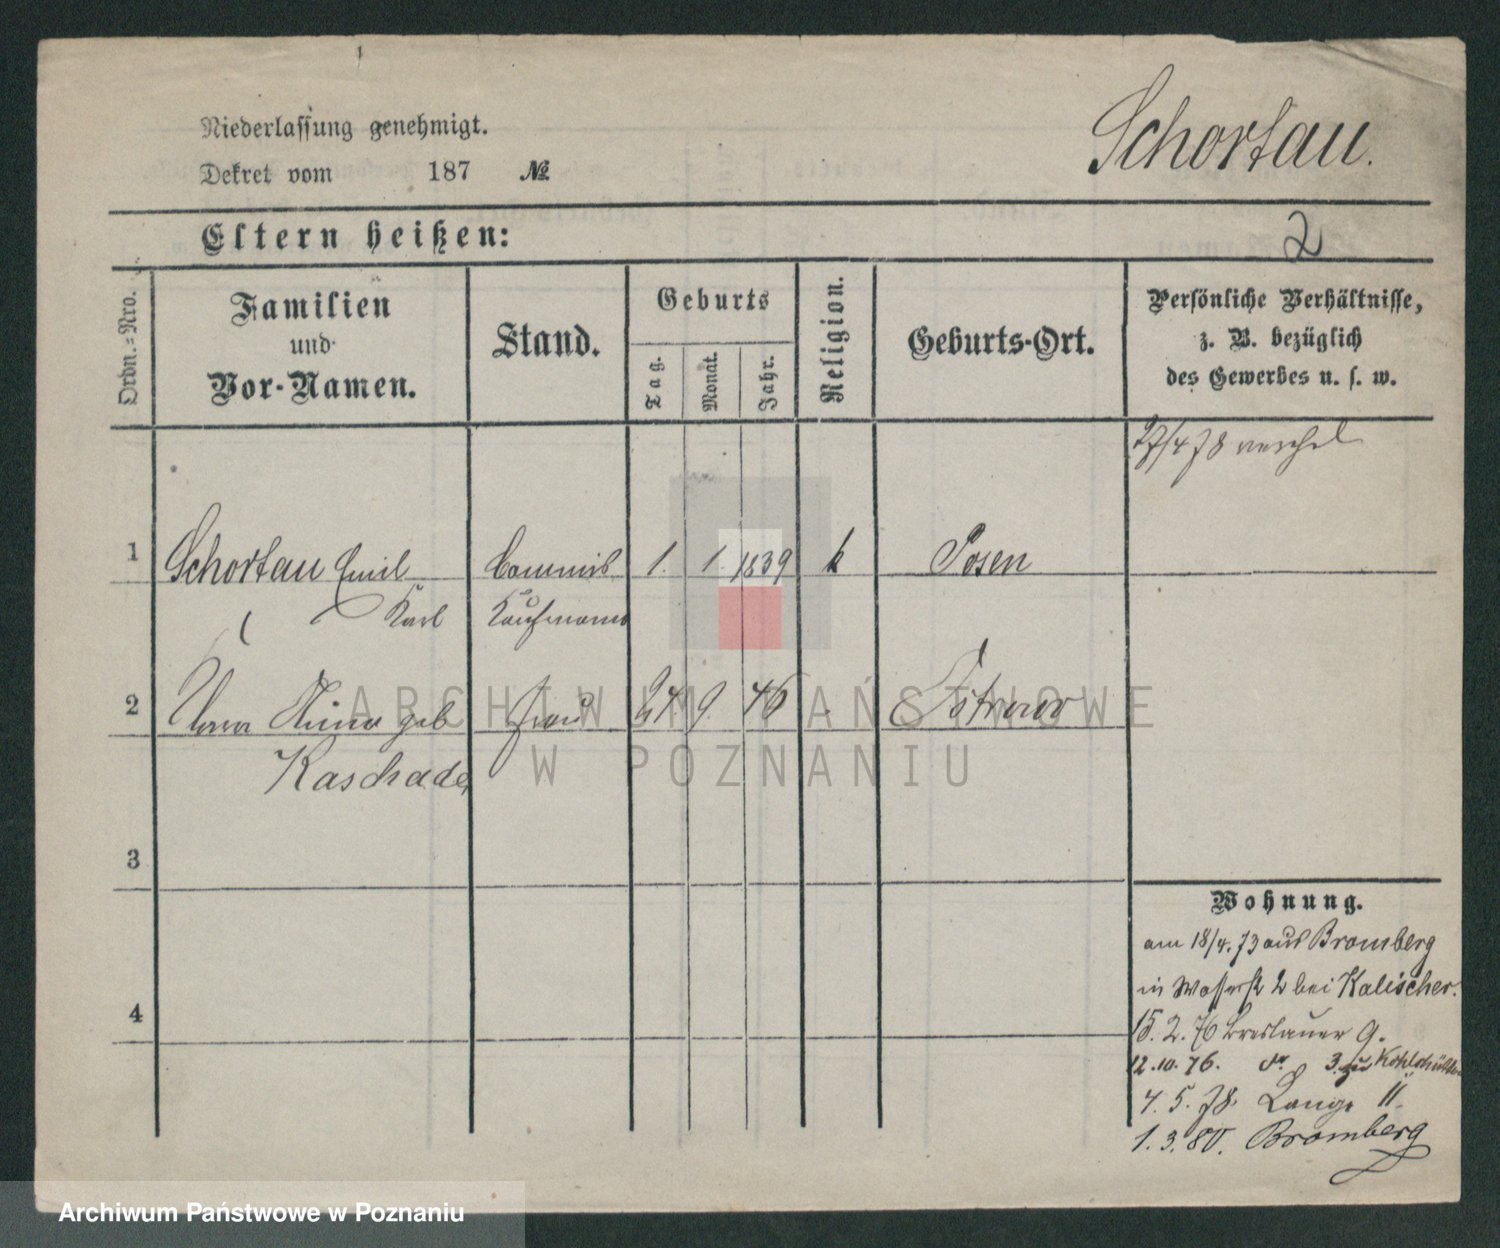 Niederlassung genehmigt.
Dekret vom 187 №
Schortau.
Eltern heißen:
2
Ordn.=Nro.
Familien
und
Vor-Namen.
Stand.
Geburts
Tag.
Monat.
Jahr.
Religion.
Geburts-Ort.
Persönliche Verhältnisse,
z. B. bezüglich
des Gewerbes u. s. w.
27/4 78
1 Schortau Emil Commis 1. 1. 1839 k Posen
Karl Kaufmann
2 Anna geb Frau 24. 9. 46 Ostrowo
Kaschade
3
4
Wohnung.
am 18/4. 73 aus Bromberg
in Wasserst 2 bei Kalischer.
15. 2. 76 Breslauer 9.
12. 10. 76. do 3. zu
4. 5. 78. Lange 11.
1. 3. 80. Bromberg
ARCHIWUM PAŃSTWOWE
W POZNANIU
Archiwum Państwowe w Poznaniu